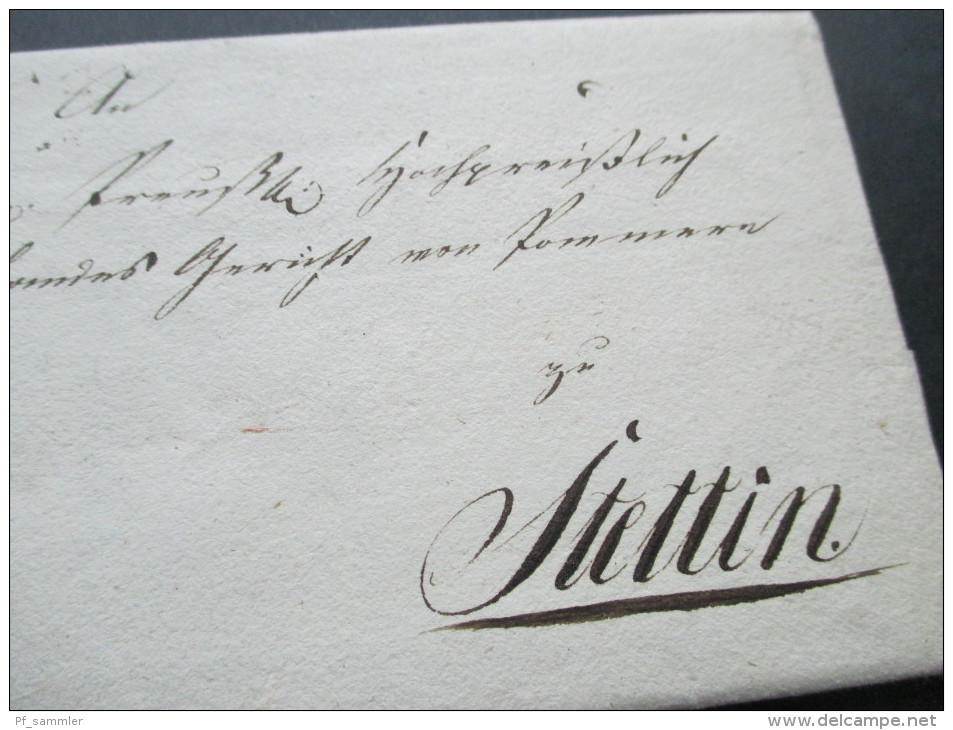 An
Preußl. Hochpreißlich
landes Gericht von Pommern
zu
Stettin.
Pf_sammler
www.delcampe.net